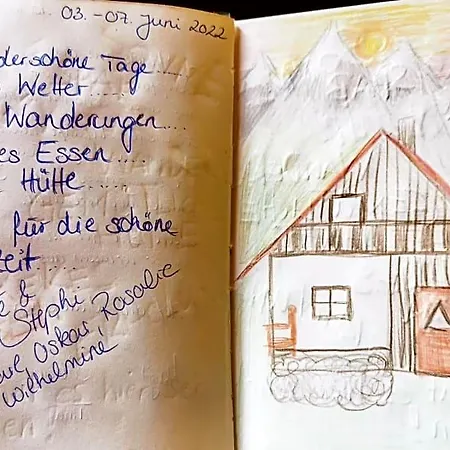 03. - 07. Juni 2022
derschöne Tage.....
Wetter.....
Wanderungen....
es Essen.....
Hütte.....
für die schöne
zeit.....
&
Stephi
Oskar, Rosalie
Wilhelmine